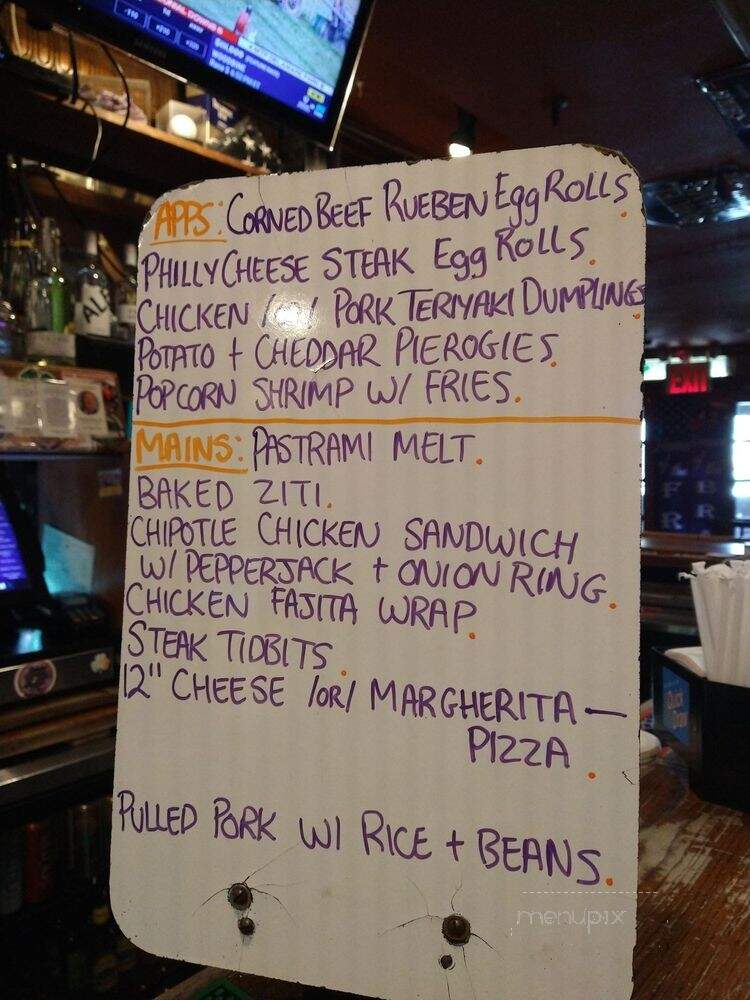 APPS: CORNED BEEF RUEBEN Egg ROLLS.
PHILLY CHEESE STEAK Egg ROLLS.
CHICKEN /or/ PORK TERIYAKI DUMPLINGS.
POTATO + CHEDDAR PIEROGIES.
POPCORN SHRIMP W/ FRIES.
MAINS: PASTRAMI MELT.
BAKED ZITI.
CHIPOTLE CHICKEN SANDWICH
W/ PEPPERJACK + ONION RING.
CHICKEN FAJITA WRAP.
STEAK TIDBITS.
12" CHEESE /OR/ MARGHERITA —
PIZZA.
PULLED PORK W/ RICE + BEANS.
menupix
EXIT
Quick
Draw